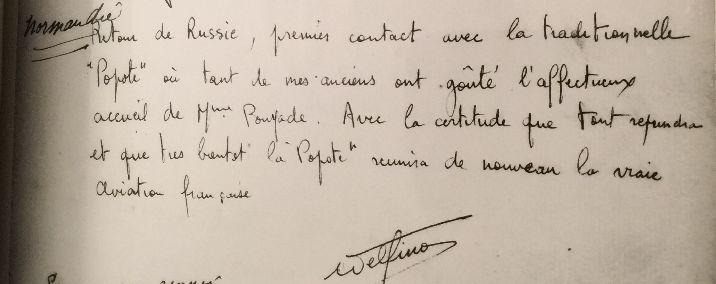 Normandie
Retour de Russie, premier contact avec la traditionnelle
"Popote" où tant de mes anciens ont goûté l'affectueux
accueil de Mme Pouyade. Avec la certitude que tout reprendra
et que tres bientot "la Popote" reunira de nouveau la vraie
aviation française
Delfino